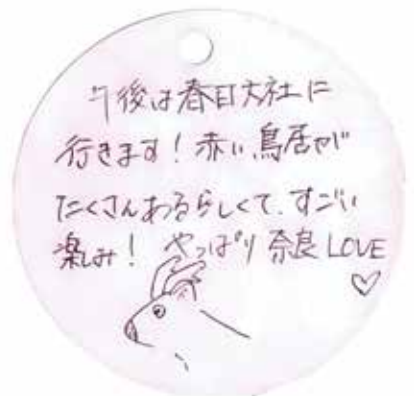 午後は春日大社に
行きます！赤い鳥居が
たくさんあるらしくて、すごい
楽しみ！やっぱり奈良LOVE
♡